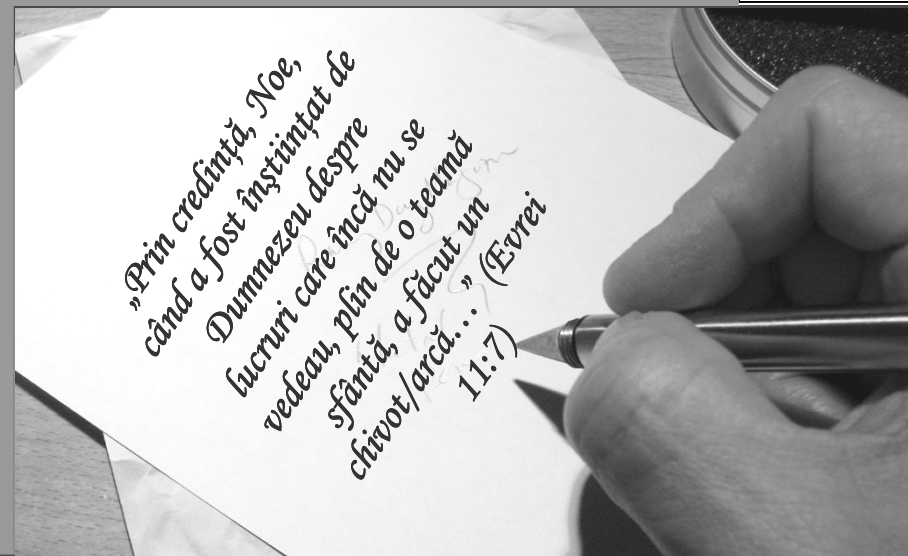 „Prin credință, Noe,
când a fost înștiințat de
Dumnezeu despre
lucruri care încă nu se
vedeau, plin de o teamă
sfântă, a făcut un
chivot/arcă…” (Evrei
11:7)